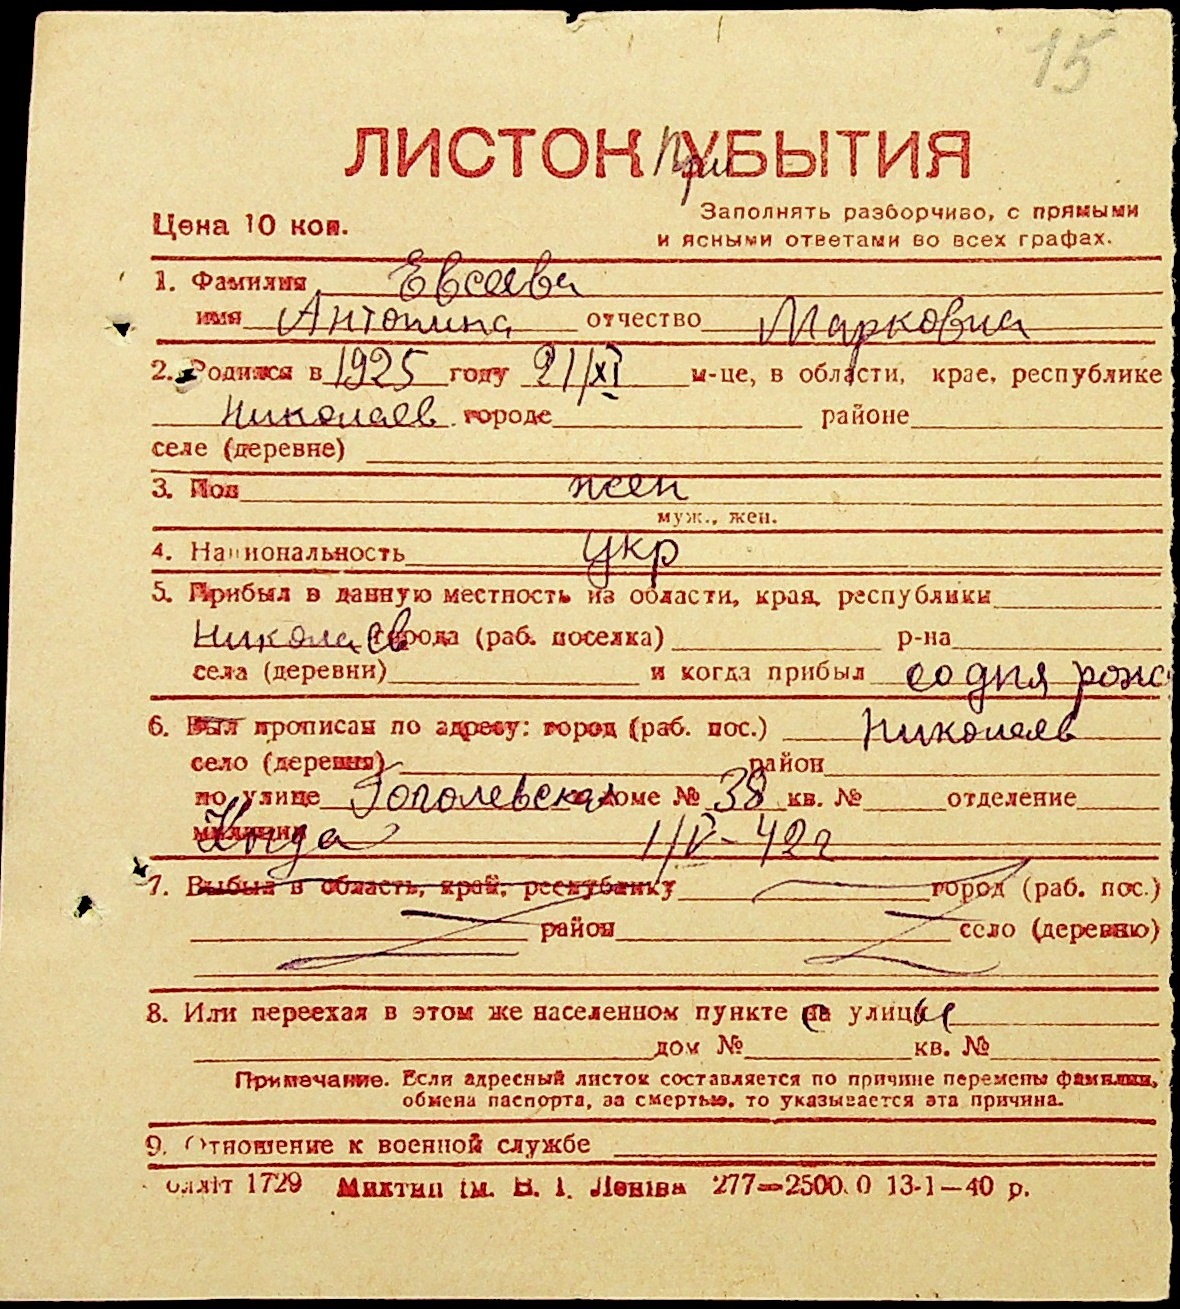 15
ЛИСТОК При УБЫТИЯ
Цена 10 коп.
Заполнять разборчиво, с прямыми
и ясными ответами во всех графах.
1. Фамилия Евсеева
имя Антонина отчество Марковна
2. Родился в 1925 году 21/XI м-це, в области, крае, республике
Николаев городе районе
селе (деревне)
3. Пол жен
муж., жен.
4. Национальность укр
5. Прибыл в данную местность из области, края, республики
Николаев города (раб. поселка) р-на
села (деревни) и когда прибыл со дня рожд
6. Был прописан по адресу: город (раб. пос.) Николаев
село (деревня) район
по улице Гоголевская доме № 38 кв. № отделение
милиции Когда 1/V-42 г
7. Выбыл в область, край, республику город (раб. пос.)
район село (деревню)
8. Или переехал в этом же населенном пункте с на улицы
дом № кв. №
Примечание. Если адресный листок составляется по причине перемены фамилии,
обмена паспорта, за смертью, то указывается эта причина.
9. Отношение к военной службе
1729 Миктип ім. В. І. Леніна 277—2500.0 13-1—40 р.